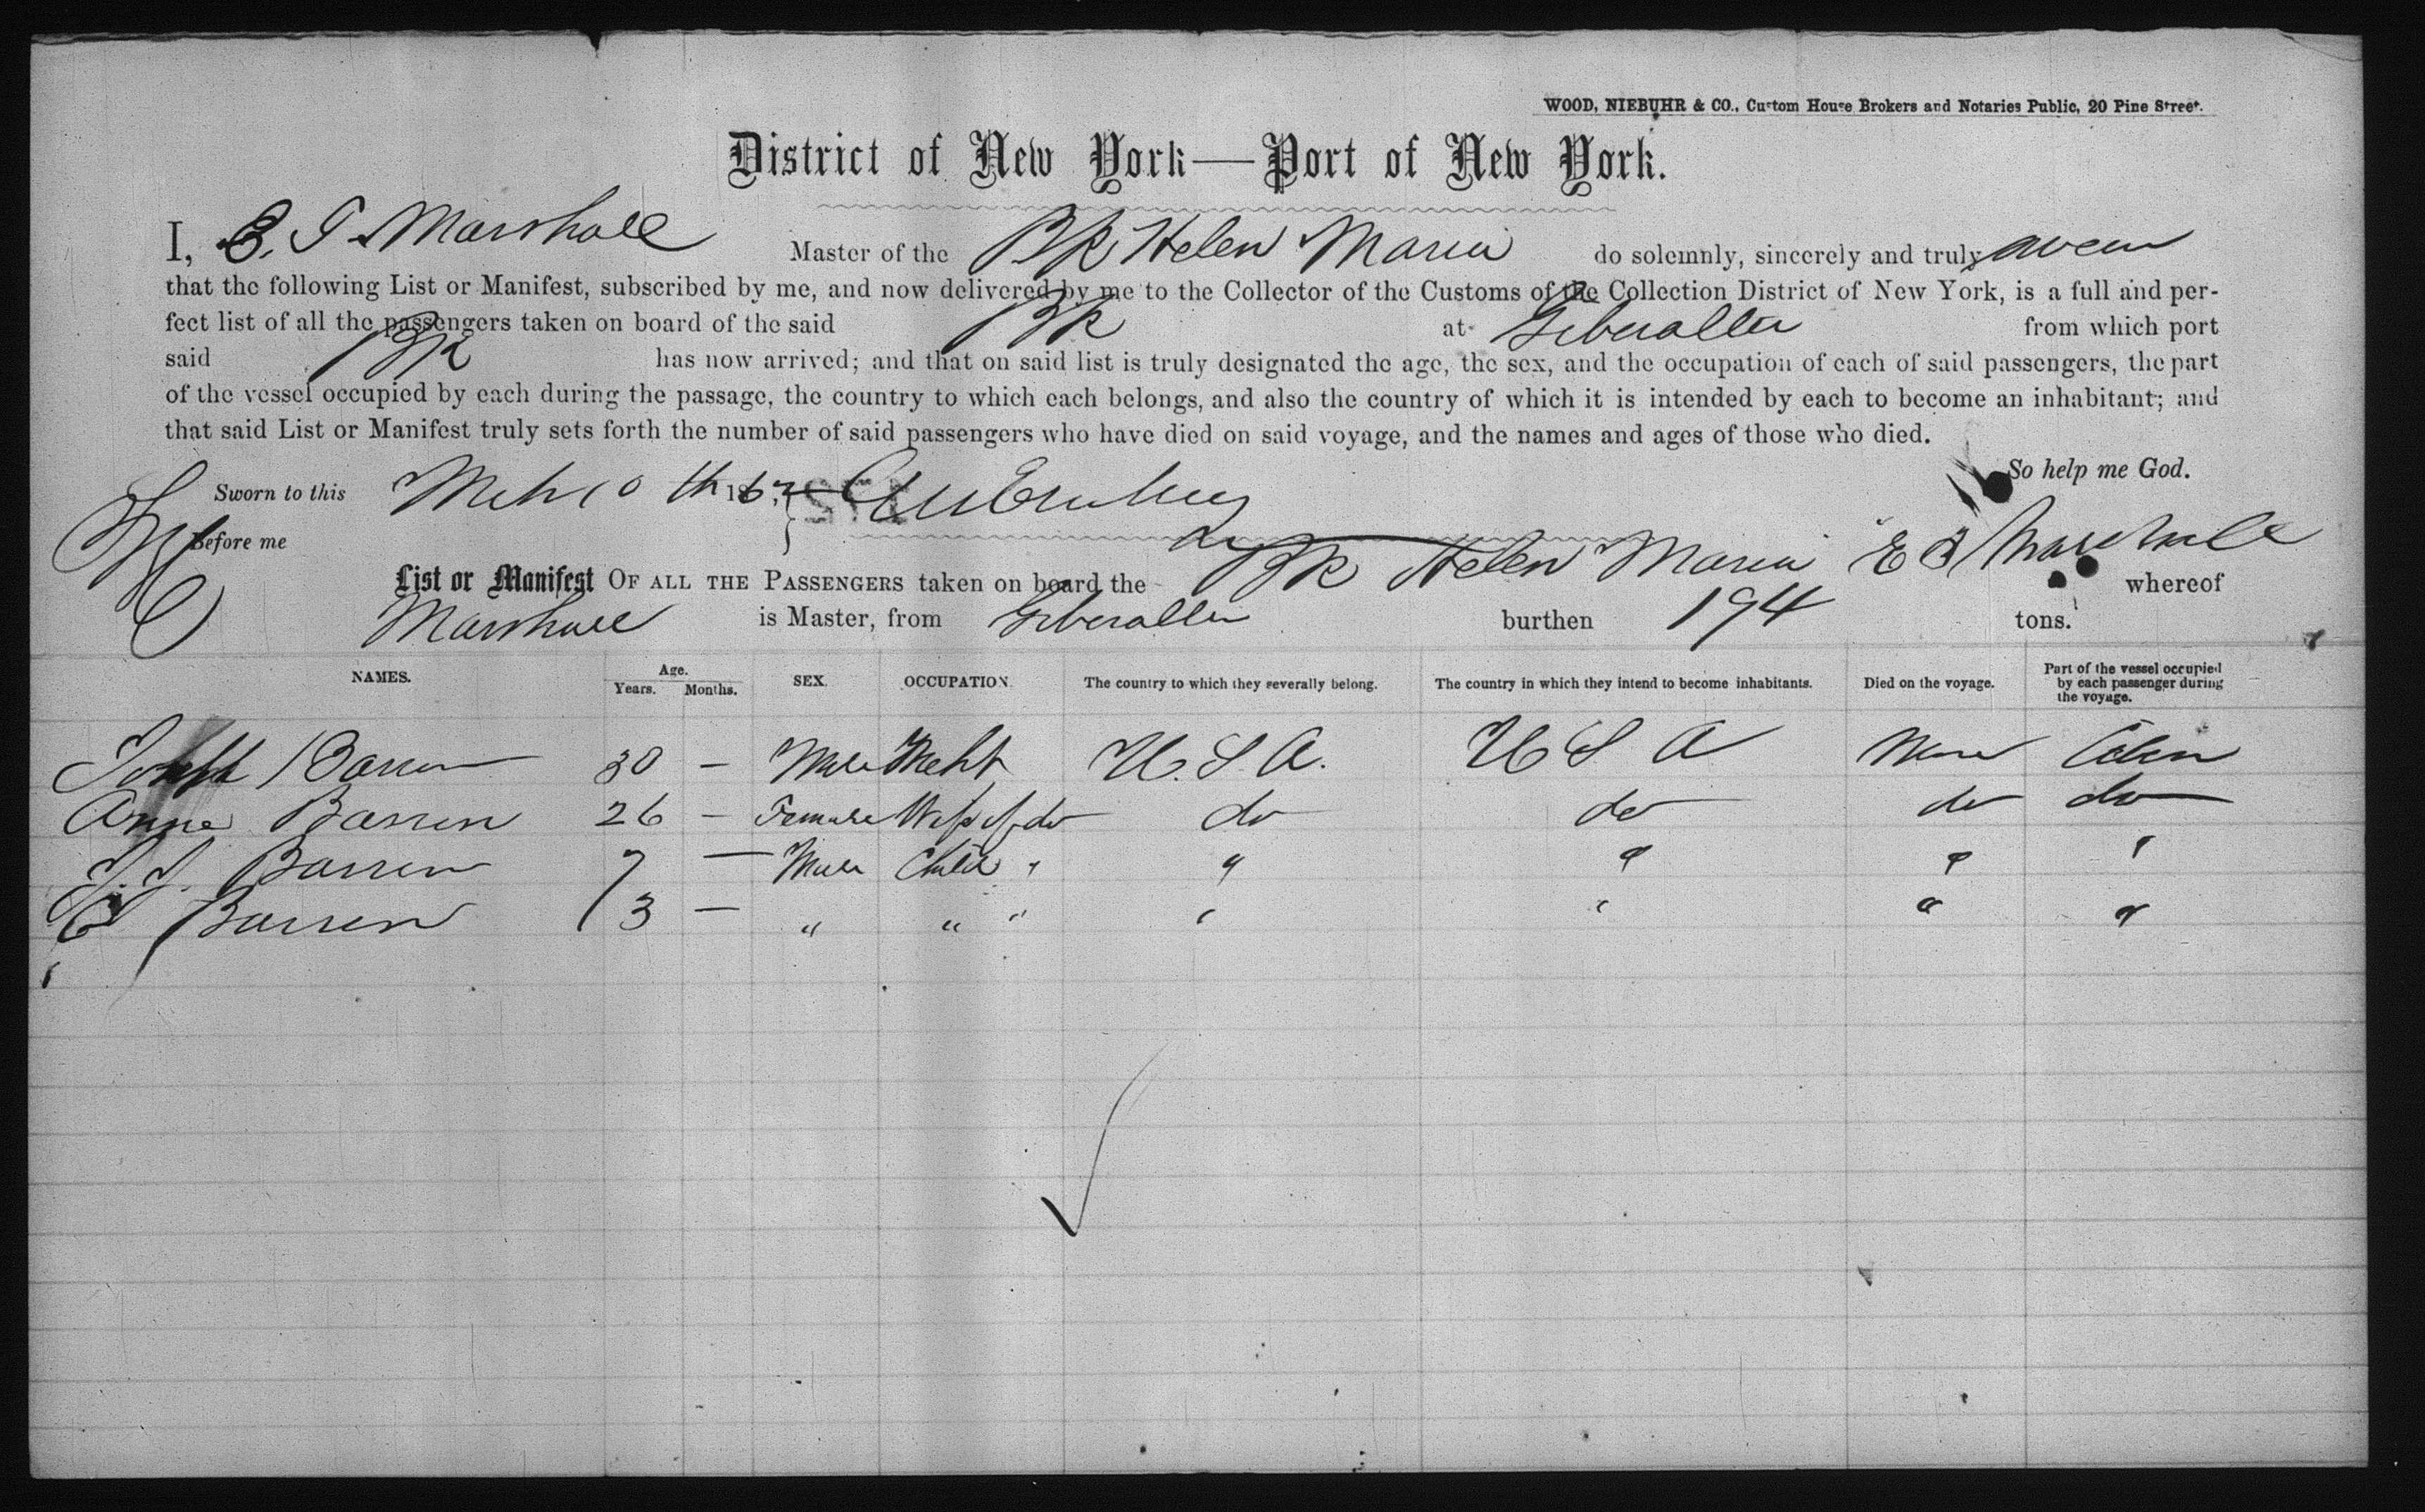 WOOD, NIEBUHR & CO., Custom House Brokers and Notaries Public, 20 Pine Street.
District of New York—Port of New York.
I, E. T. Marshall Master of the Bk Helen Maria do solemnly, sincerely and truly swear
that the following List or Manifest, subscribed by me, and now delivered by me to the Collector of the Customs of the Collection District of New York, is a full and per-
fect list of all the passengers taken on board of the said Bk at Giberalter from which port
said Bk has now arrived; and that on said list is truly designated the age, the sex, and the occupation of each of said passengers, the part
of the vessel occupied by each during the passage, the country to which each belongs, and also the country of which it is intended by each to become an inhabitant; and
that said List or Manifest truly sets forth the number of said passengers who have died on said voyage, and the names and ages of those who died.
So help me God.
Sworn to this Mch 10 th 18
Before me
Marshall
List or Manifest OF ALL THE PASSENGERS taken on board the Bk Helen Maria whereof
Marshall is Master, from Giberalter burthen 194 tons.
NAMES. Age. Years. Months. SEX. OCCUPATION. The country to which they severally belong. The country in which they intend to become inhabitants. Died on the voyage. Part of the vessel occupied by each passenger during the voyage.
Joseph Barren 30 — Male Mcht U.S.A. U S A None Cabin
Anne Barren 26 — Female Wife of do do do do do
J. J. Barren 7 — Male Child " " " " "
Barren 3 — " " " " " " "